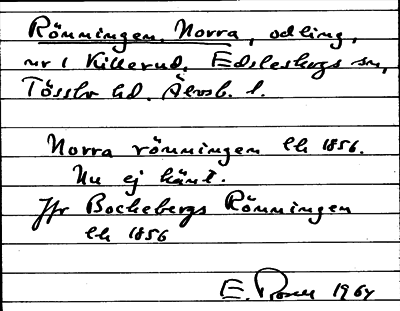 Rönningen, Norra, odling,
nr 1 Killerud, Edsleskogs sn,
Tössbo hd. Älvsb. l.
Norra rönningen lk 1856.
Nu ej känt.
Jfr Bockebergs Rönningen
lk 1856
E. 1964